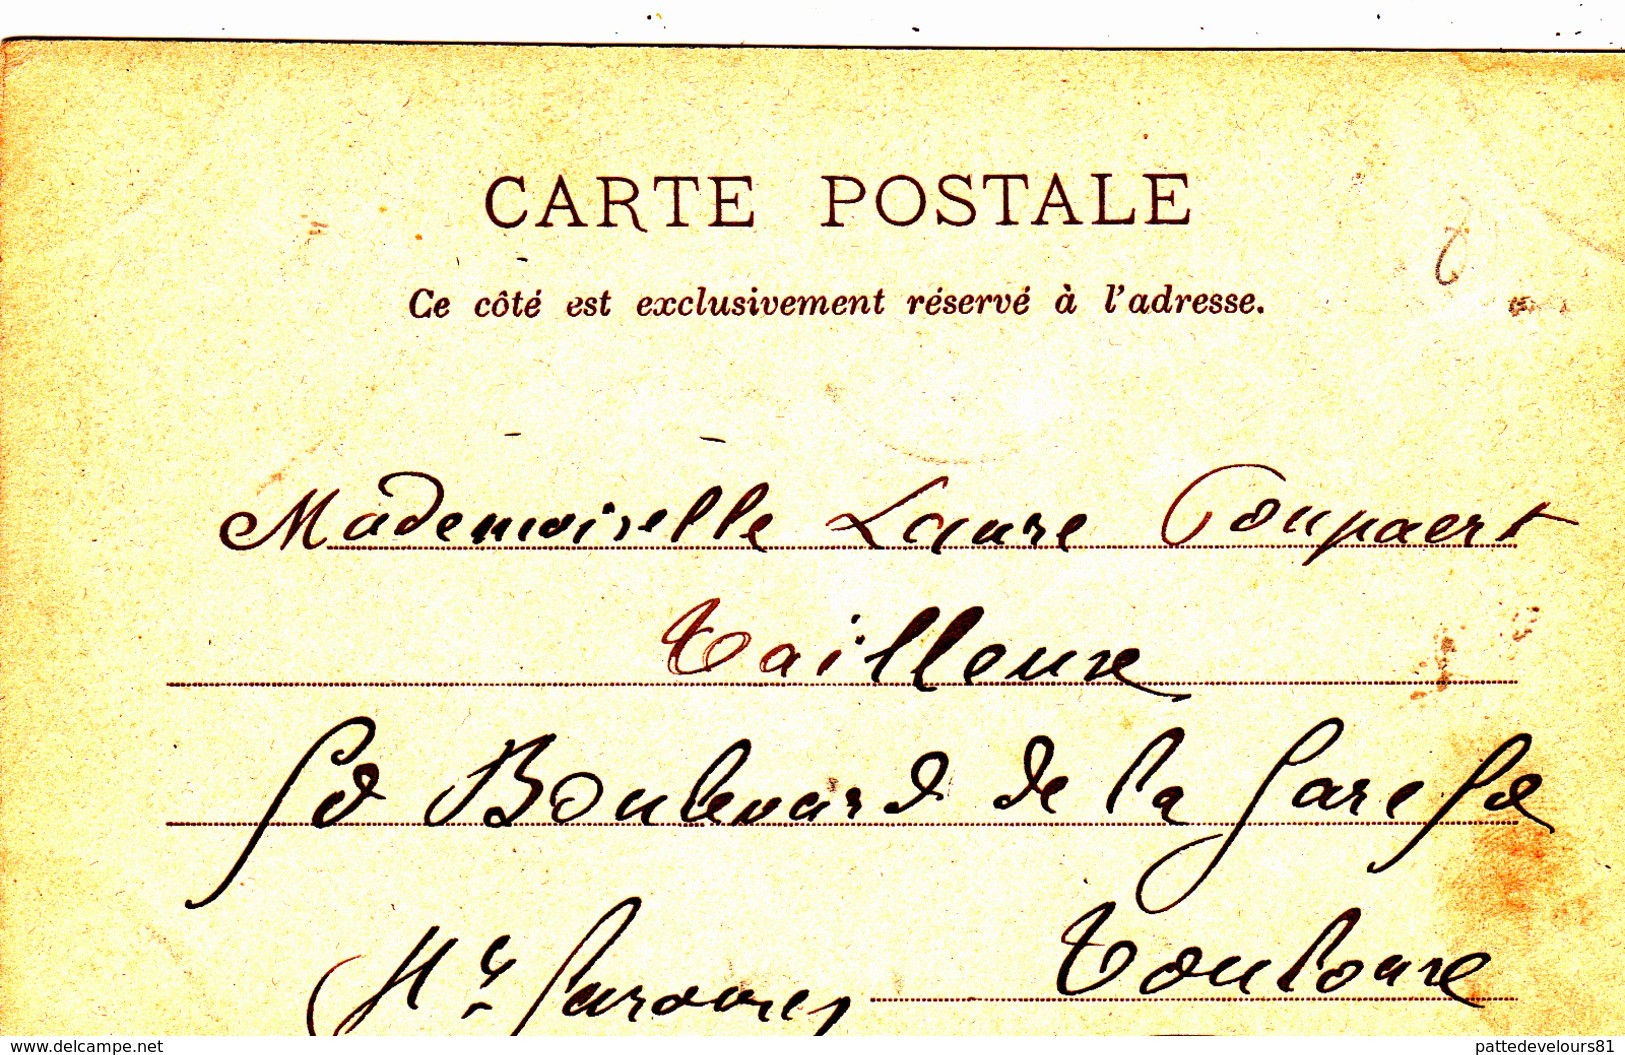 CARTE POSTALE
Ce côté est exclusivement réservé à l'adresse.
Mademoiselle Laure Poupaert
Tailleuse
Gd Boulevard de la Gare
Hte Garonne Toulouse
www.delcampe.net pattedevelours81